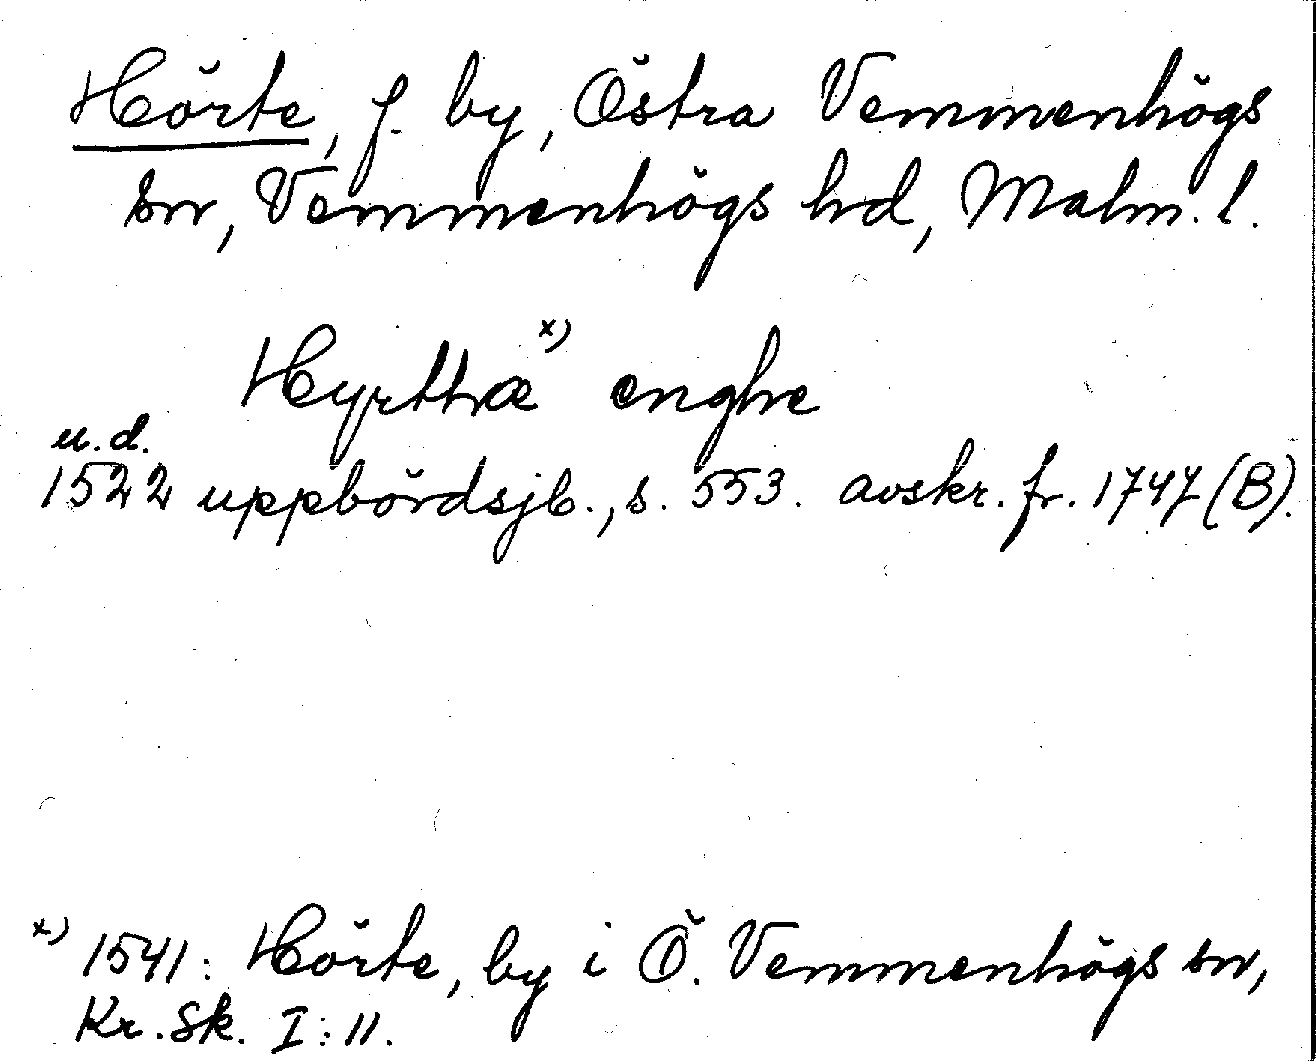 Hörte, f. by, Östra Vemmenhögs
sn, Vemmenhögs hd, Malm. l.
Hyrthæ x) enghe
u.d.
1522 uppbördsjb., s. 553. avskr. fr. 1747 (B).
x) 1541: Hörte, by i Ö. Vemmenhögs sn,
Kr. Sk. I: 11.